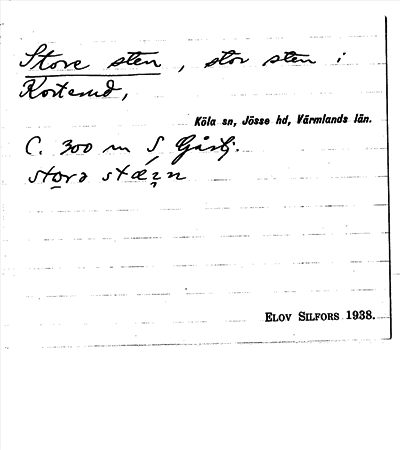 Store sten, stor sten i
Korterud,
Köla sn, Jösse hd, Värmlands län.
C. 300 m S
ELOV SILFORS 1938.